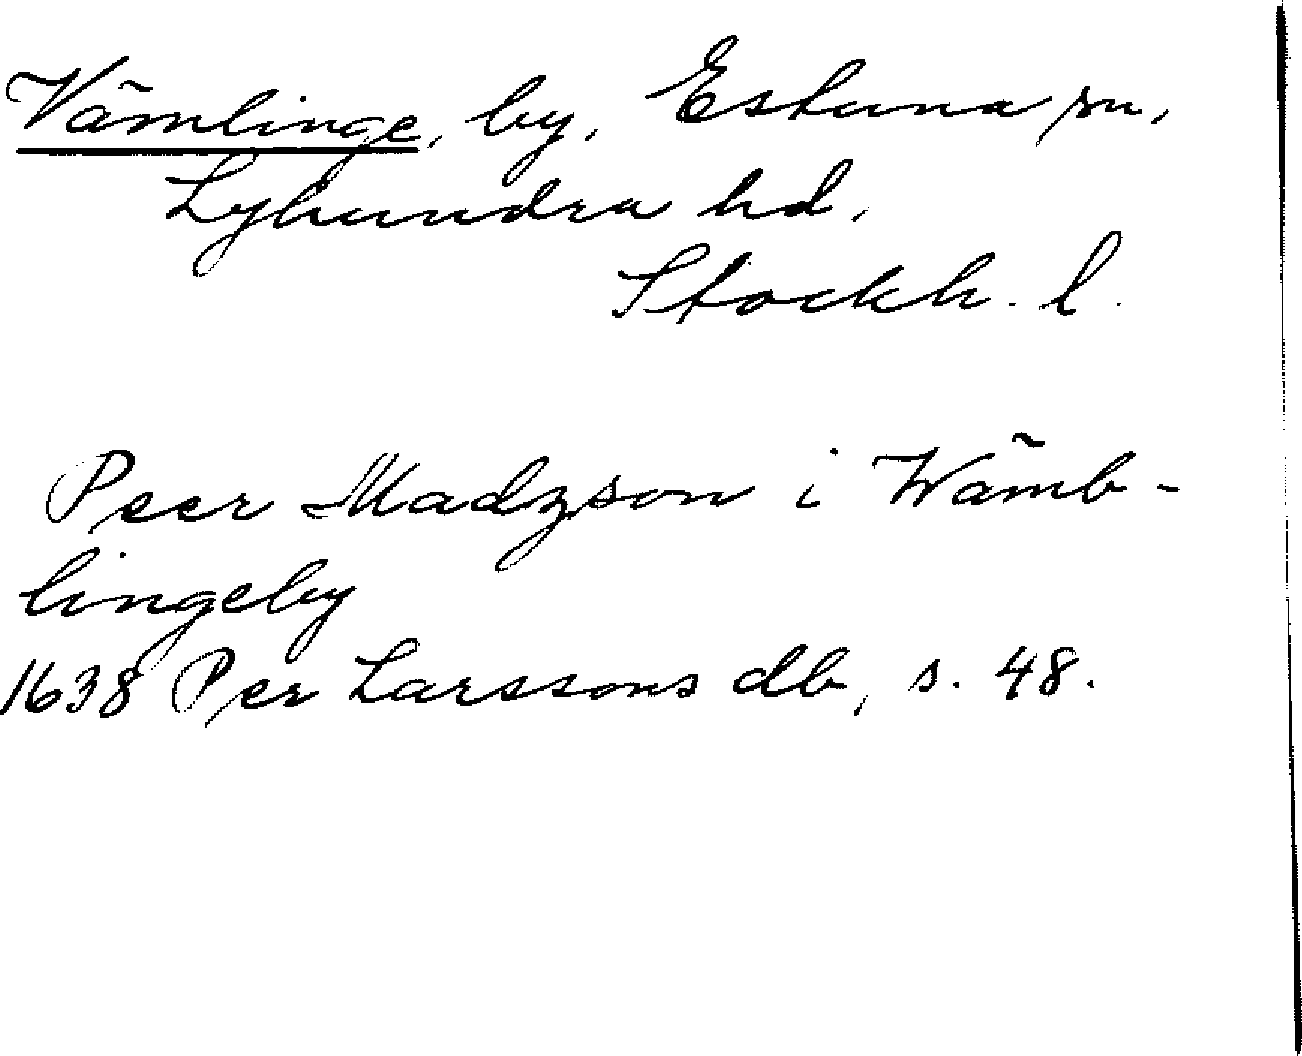 Vämlinge, by, Estuna sn,
Lyhundra hd.
Stockh. l.
Peer Madzson i Wämb-
lingeby
1638 Per Larssons db, s. 48.